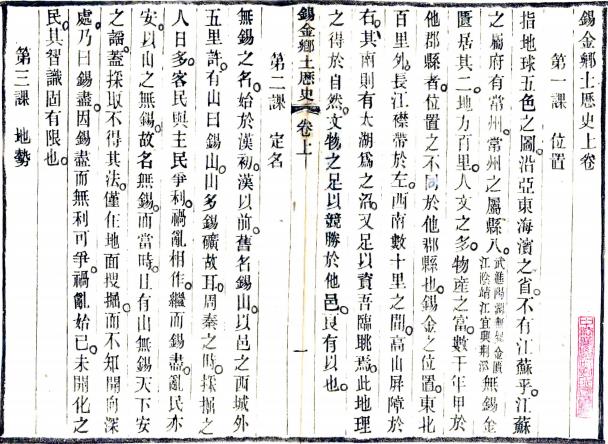 錫金鄉土歷史上卷
第一課　位置
指地球五色之圖沿亞東海濱之省不有江蘇乎江蘇
之屬府有常州常州之屬縣八武進陽湖無錫金匱江陰靖江宜興荊溪無錫金
匱居其二地方百里人文之多物產之富數千年甲於
他郡縣者位置之不同於他郡縣也錫金之位置東北
百里外長江襟帶於左西南數十里之間高山屏障於
右其南則有太湖爲之沼又足以資吾臨眺焉此地理
之得於自然文物之足以競勝於他邑良有以也
第二課　定名
錫金鄉土歷史　卷上　一
無錫之名始於漢初漢以前舊名錫山以邑之西城外
五里許有山曰錫山山多錫礦故耳周秦之時採掘之
人日多客民與主民爭利禍亂相作繼而錫盡亂民亦
安以山之無錫故名無錫而當時且有山無錫天下安
之謠蓋採取不得其法僅在地面搜掘而不知開向深
處乃曰錫盡因錫盡而無利可爭禍亂始已未開化之
民其智識固有限也
第三課　地勢